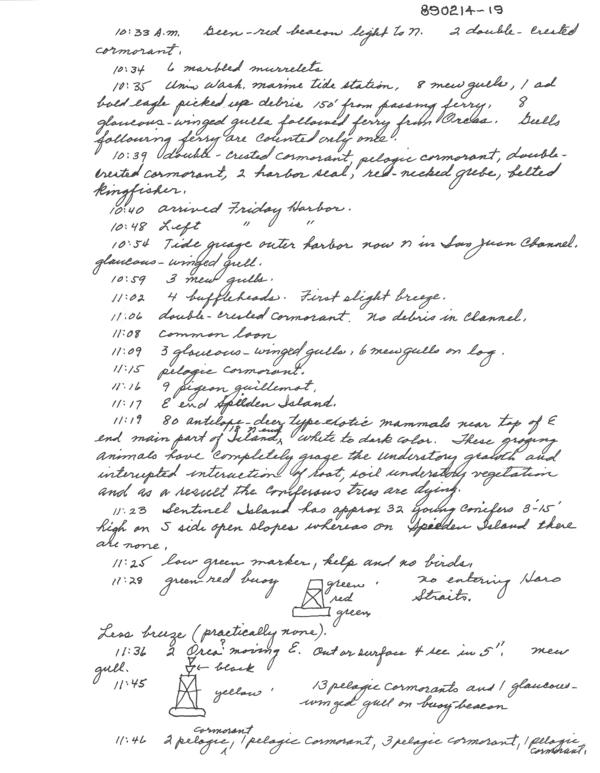 890214-19
10:33 A.m. Geen-red beacon light to N. 2 double-crested
cormorant.
10:34 6 marbled murrelets
10:35 Univ Wash. marine tide station, 8 mew gulls, 1 ad
bald eagle picked up debris 150' from passing ferry. 8
glaucous-winged gulls followed ferry from Orcas. Gulls
following ferry are counted only once.
10:39 double-crested cormorant, pelagic cormorant, double-
crested cormorant, 2 harbor seal, red-necked grebe, belted
Kingfisher.
10:40 arrived Friday Harbor.
10:48 Left " "
10:54 Tide guage outer harbor now n in San Juan Channel.
glaucous-winged gull.
10:59 3 mew gulls.
11:02 4 buffleheads. First slight breeze.
11:06 double-crested cormorant. no debris in Channel.
11:08 common loon
11:09 3 glaucous-winged gulls, 6 mew gulls on log.
11:15 pelagic cormorant.
11:16 9 pigeon guillemot.
11:17 E end Spieden Island.
11:19 80 antelope-deer type exotic mammals near top of E
end main part of Island, white to dark color. These grazing
animals have completely graze the understory growth and
interupted interaction of root, soil understory vegetation
and as a result the coniferous trees are dying.
11:23 Sentinel Island has approx 32 young conifers 3'-15'
high on S side open slopes whereas on Spieden Island there
are none.
11:25 low green marker, kelp and no birds.
11:28 green-red buoy green no entering Haro
red Straits.
green
Less breeze (practically none).
11:36 2 Orca? moving E. Out or surface 4 sec in 5". mew
gull. ← black
11:45 yellow 13 pelagic cormorants and 1 glaucous-
winged gull on buoy-beacon
cormorant
11:46 2 pelagic, 1 pelagic cormorant, 3 pelagic cormorant, 1 pelagic
cormorant.